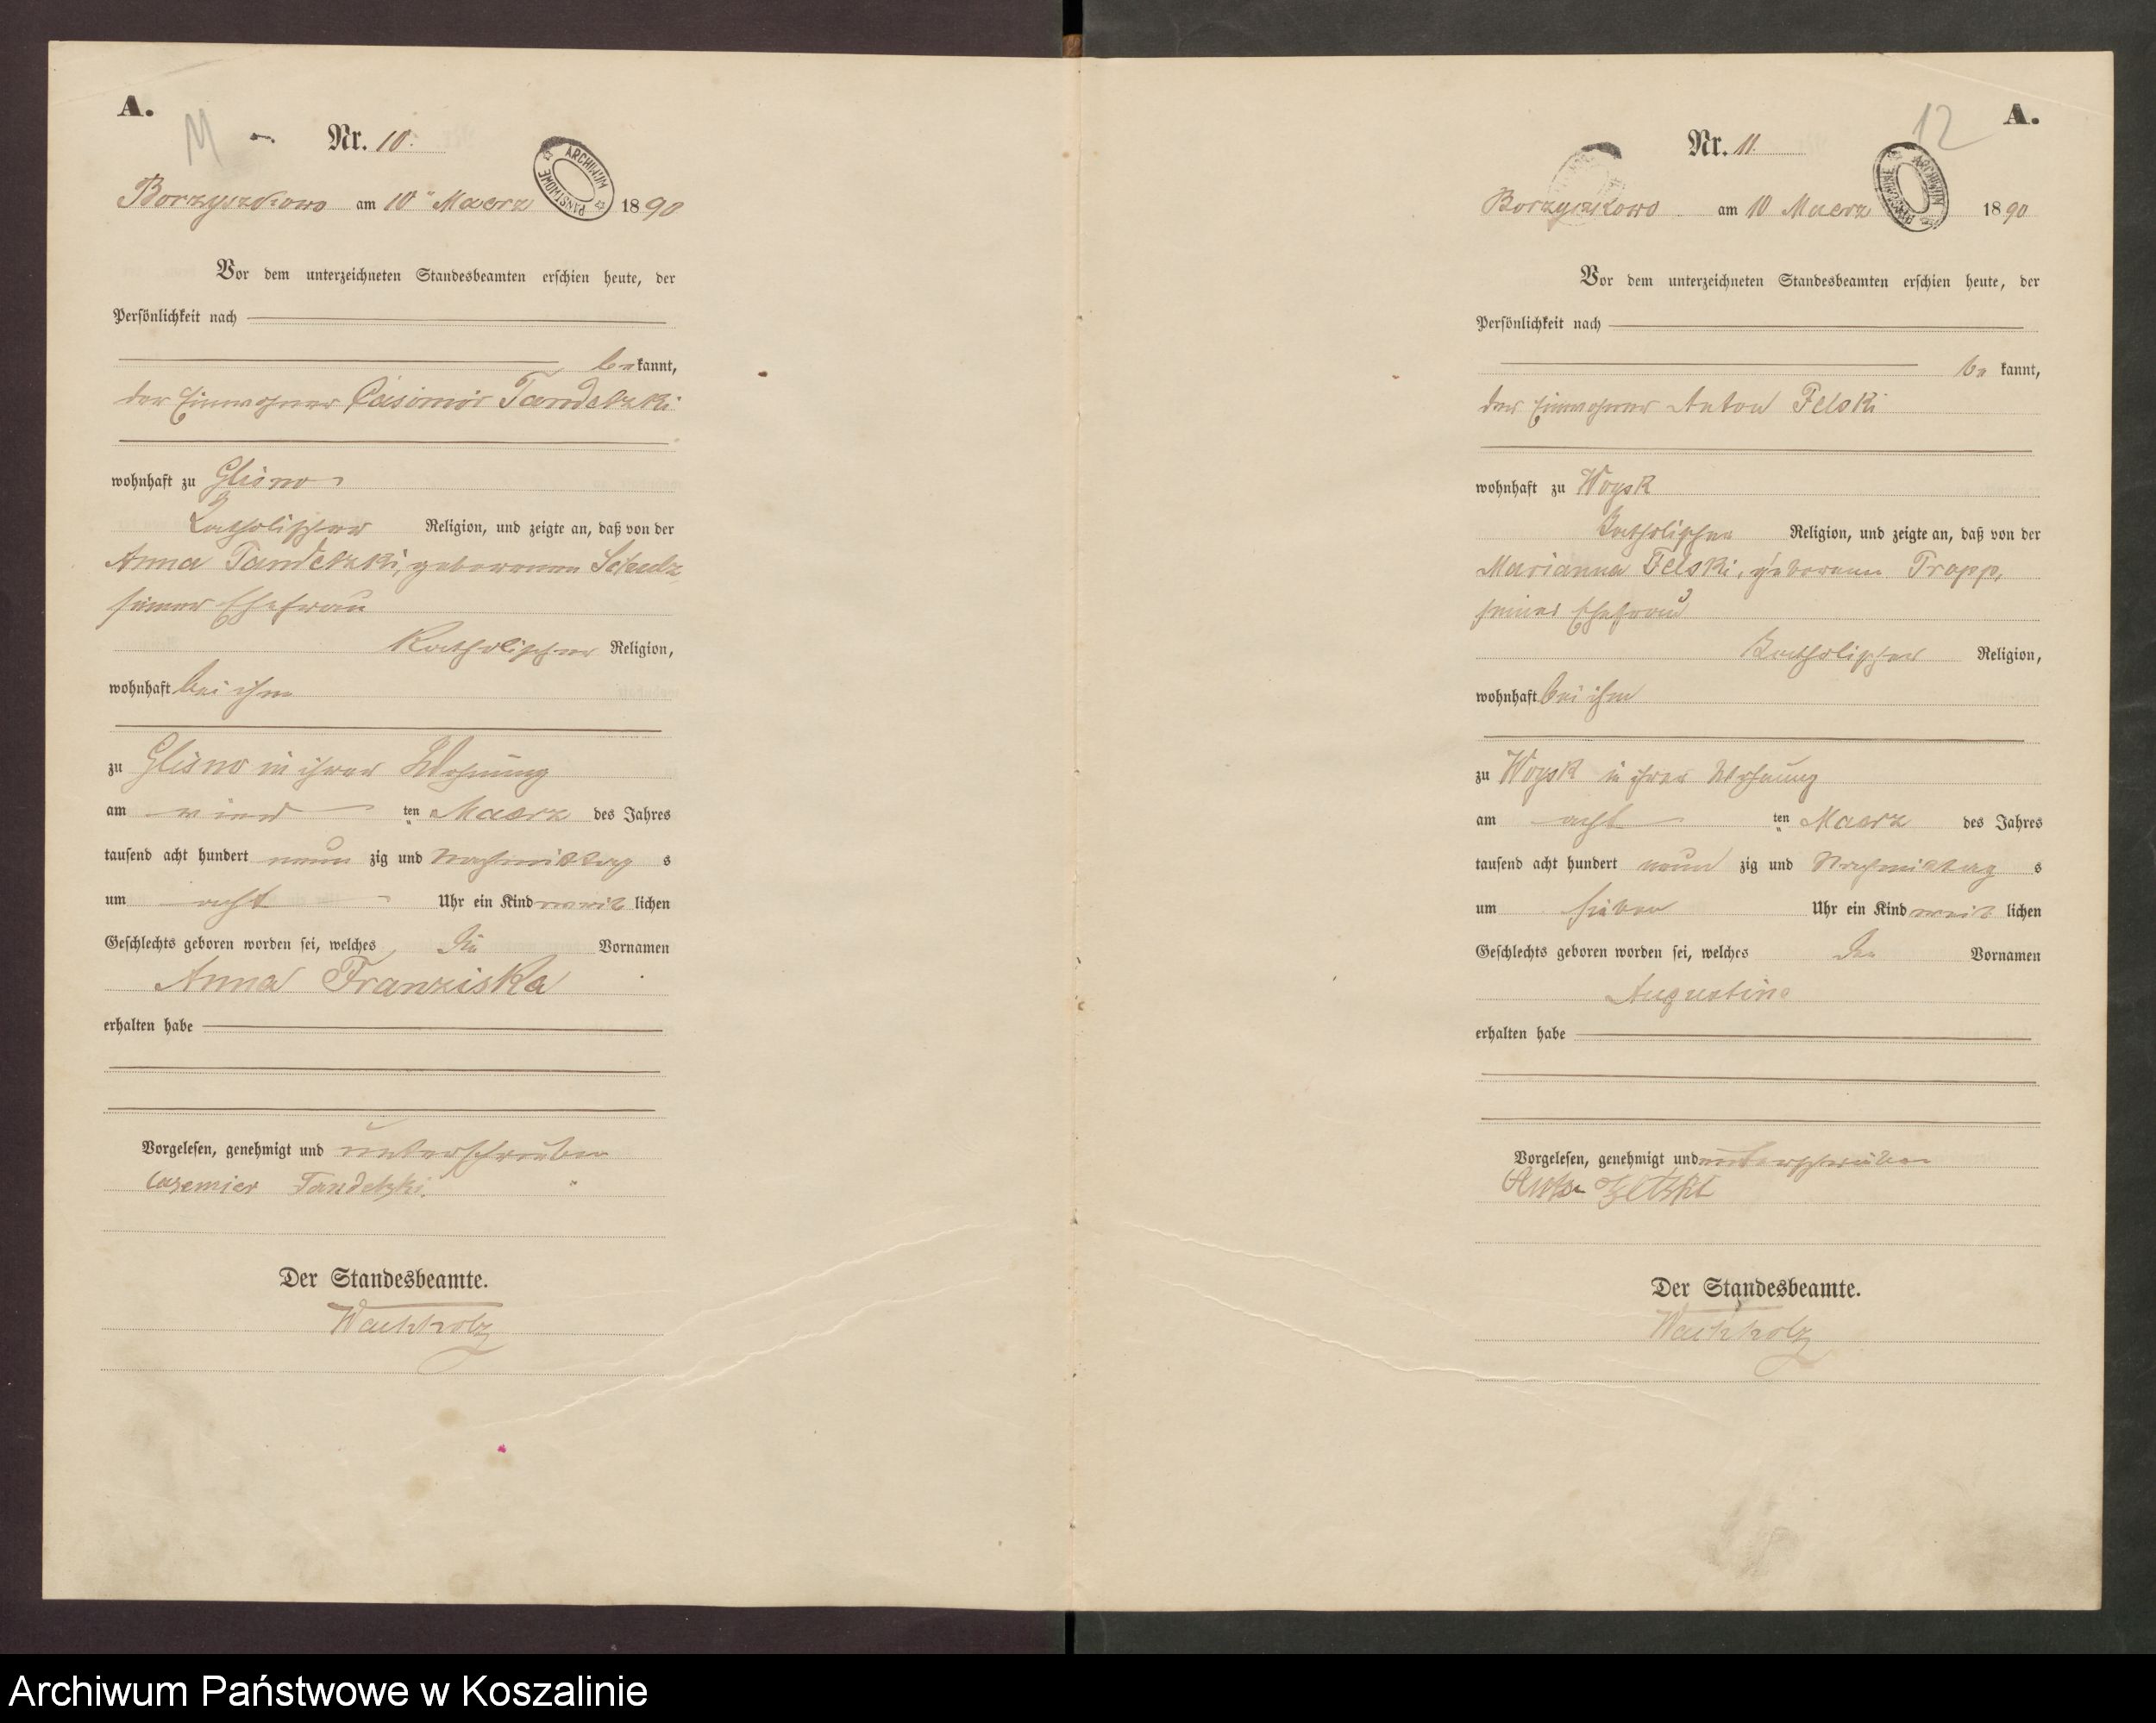 A.
Nr. 10.
ARCHIWUM PAŃSTWOWE
Borzyszkowo am 10ᵗ Maerz 1890
Vor dem unterzeichneten Standesbeamten erschien heute, der
Persönlichkeit nach
bekannt,
der Einwohner Casimir Tandetzki
wohnhaft zu Glisno
Katholischer Religion, und zeigte an, daß von der
Anna Tandetzki, geborenen Schulz
seiner Ehefrau
Katholischer Religion,
wohnhaft bei ihm
zu Glisno in ihrer Wohnung
am vier ten Maerz des Jahres
tausend acht hundert neun zig und Nachmittag s
um acht Uhr ein Kind weib lichen
Geschlechts geboren worden sei, welches die Vornamen
Anna Franziska
erhalten habe
Vorgelesen, genehmigt und unterschrieben
Casemier Tandetzki.
Der Standesbeamte.
Wachholz
12
A.
Nr. 11.
ARCHIWUM PAŃSTWOWE
Borzyszkowo am 10 Maerz 1890
Vor dem unterzeichneten Standesbeamten erschien heute, der
Persönlichkeit nach
be kannt,
der Einwohner Anton Felski
wohnhaft zu Woysk
Katholischen Religion, und zeigte an, daß von der
Marianna Felski, geborene Tropp,
seiner Ehefrau
Katholischer Religion,
wohnhaft bei ihm
zu Woysk in ihrer Wohnung
am acht ten Maerz des Jahres
tausend acht hundert neun zig und Nachmittag s
um sieben Uhr ein Kind weib lichen
Geschlechts geboren worden sei, welches den Vornamen
Augustine
erhalten habe
Vorgelesen, genehmigt und unterschrieben
Der Standesbeamte.
Wachholz
Archiwum Państwowe w Koszalinie